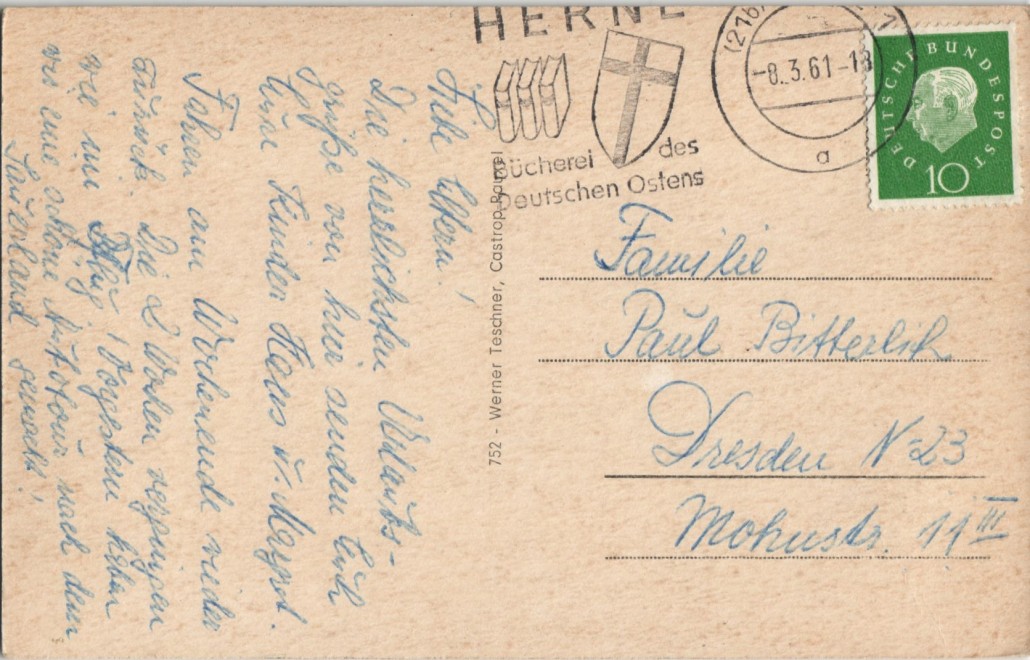 Liebe Eltern!
Die herrlichsten Urlaubs-
grüße von hier senden Euch
Eure Kinder Klaus u. Margot.
Fahren am Wochenende wieder
zurück. Die 2 Wochen vergingen
wie im Flug! Vorgestern haben
wir eine schöne Autotour nach dem
Sauerland gemacht!
752 - Werner Teschner, Castrop-Rauxel
HERNE
Bücherei des
Deutschen Ostens
(216)
-8.3.61-18
a
DEUTSCHE BUNDESPOST
10
Familie
Paul Bitterlich
Dresden N 23
Mohnstr. 11 III